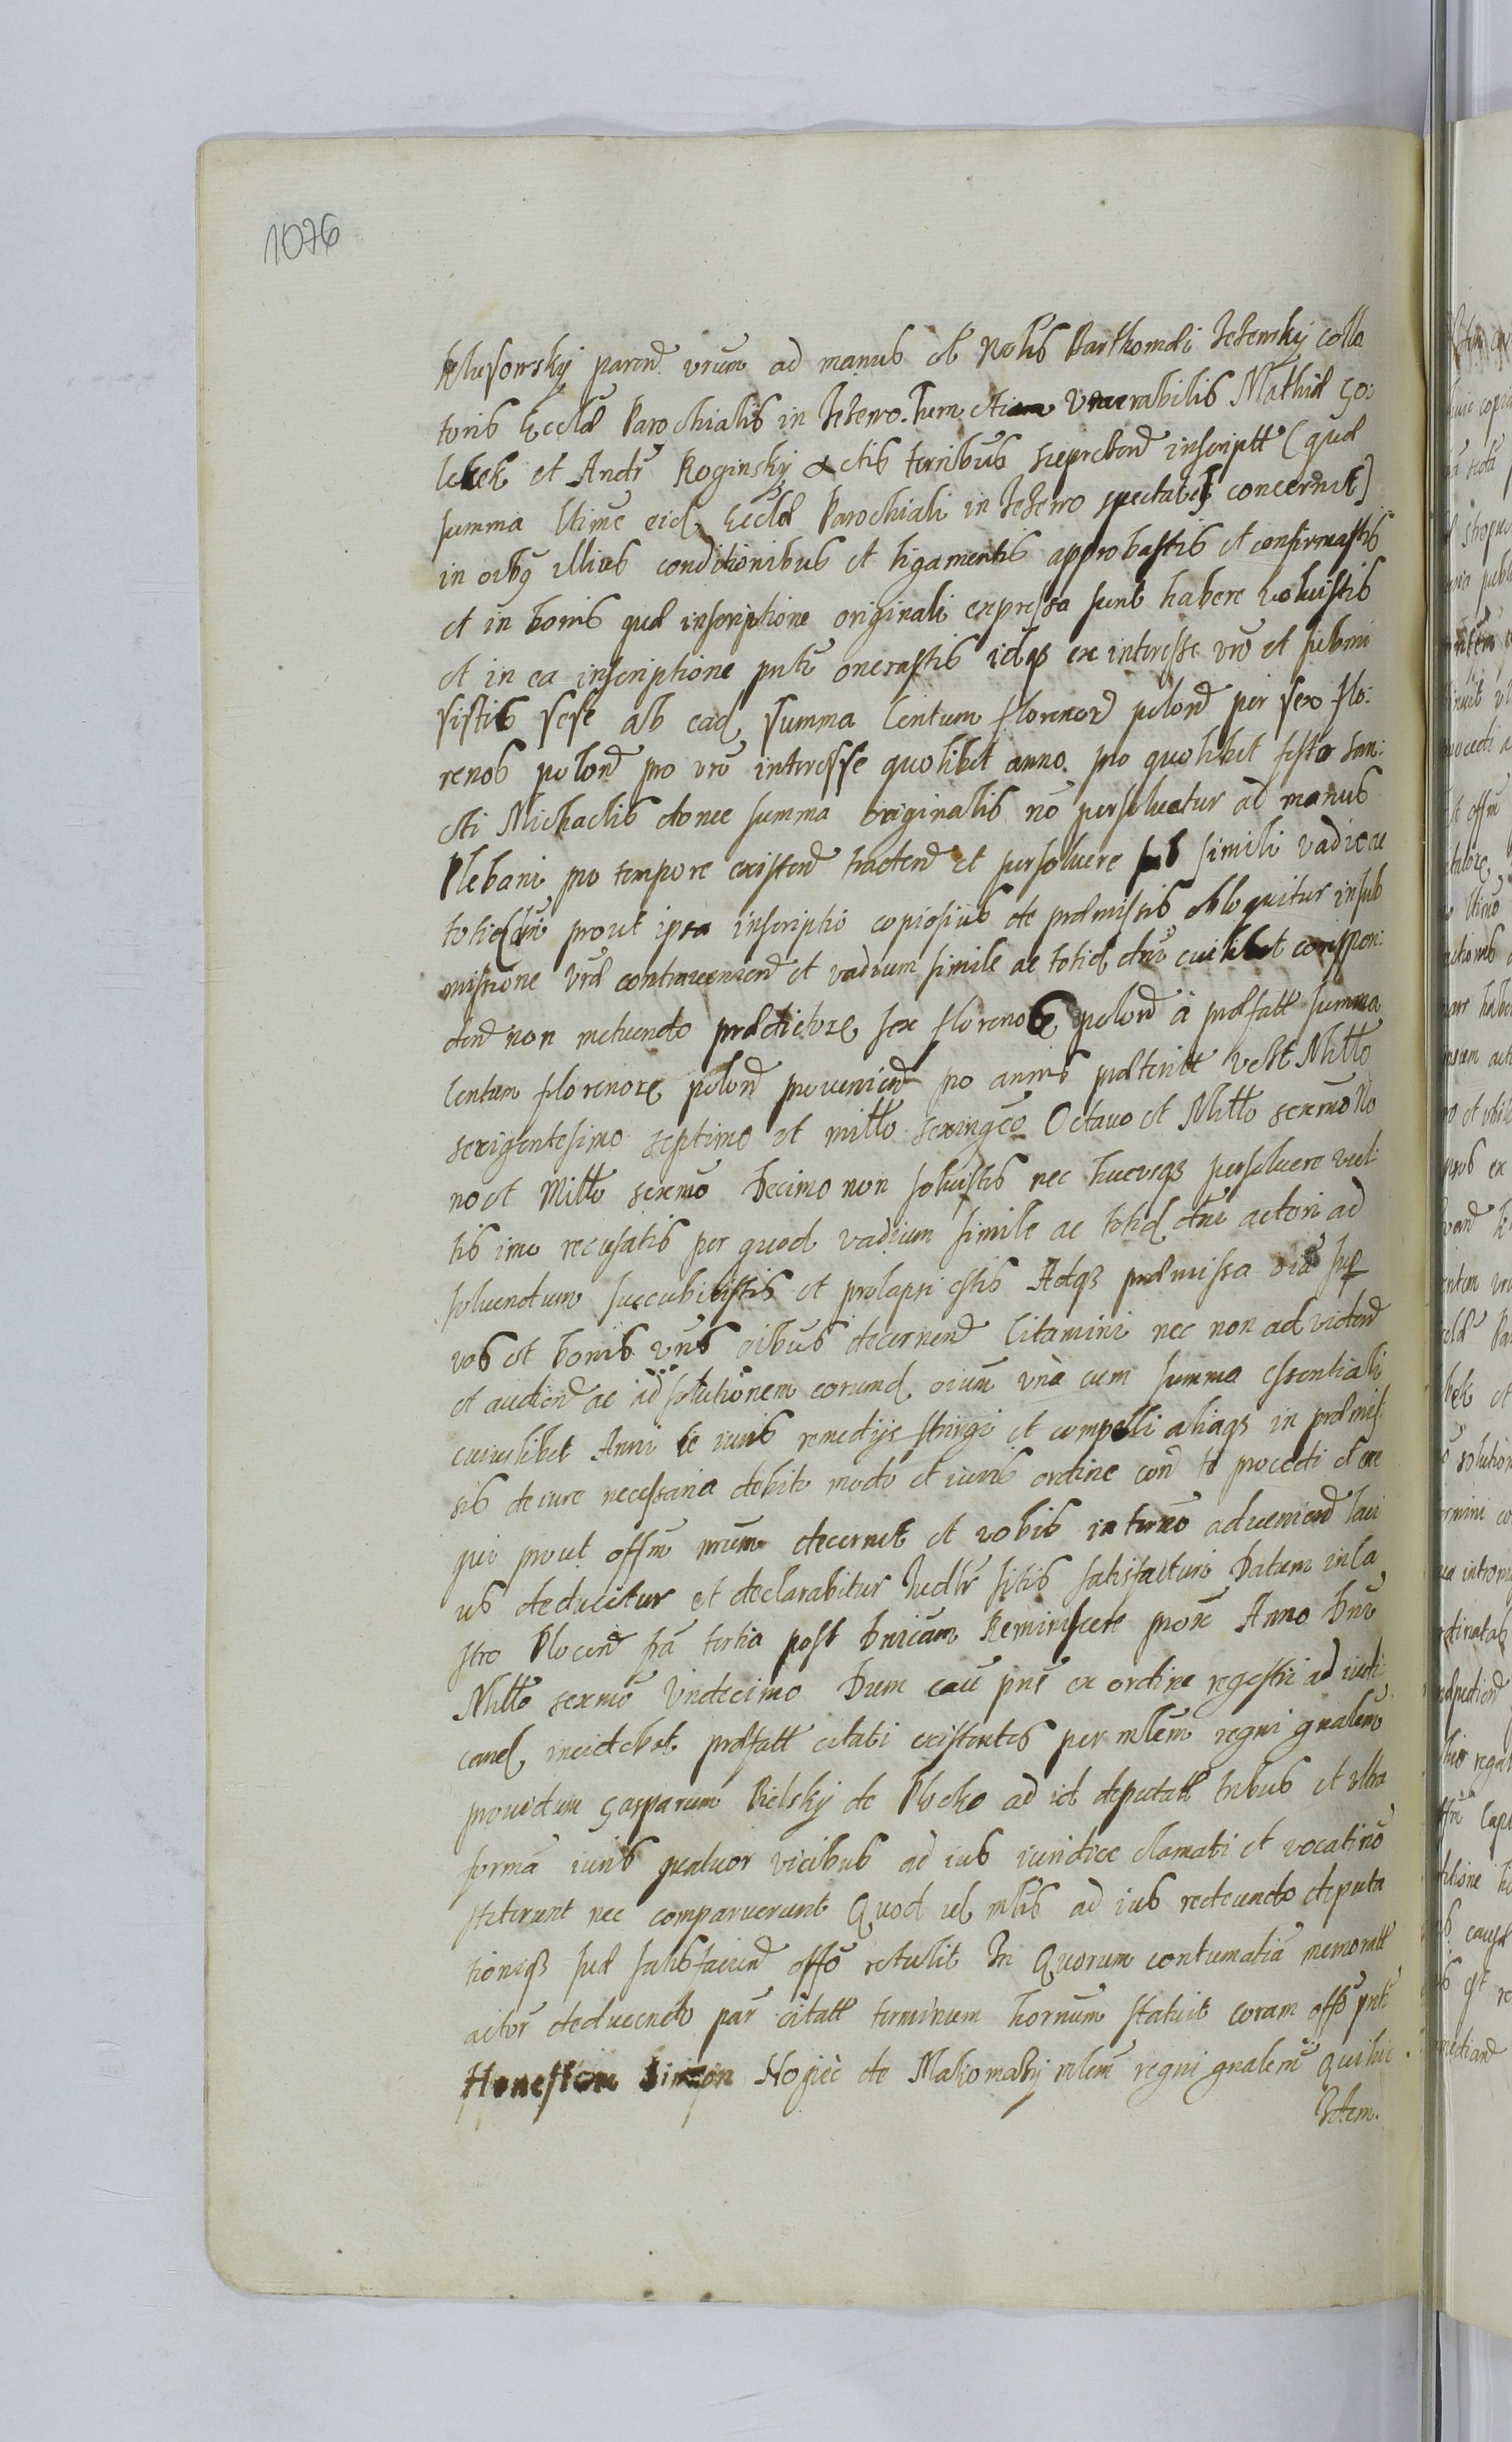 1076
parend vrum ad manus et Nobis Barthomæi Jezewsky colla
toris Ecclæ Parochialis in Jezewo. Tum etiam Venerabilis Mathiæ Go:
et Andr Roginsky actis terribus inscriptt (quæ
summa ltime eid. Ecclæ Parochiali in Jezewo concernit)
in oibq illius conditionibus et ligamentis approbastis et confirmastis
et in bonis quæ inscriptione originali expressa sunt habere voluistis
et in ea inscriptione pntū onerastis idqȝ ex interesse vrō et submi
sistis sese ab ead. summa Centum florenord polond per sex flo:
renos polond pro vrō interesse quolibet anno pro quolibet festo San:
cti Michaelis donec summa originalis nō persoluatur ad manus
Plebani pro tempore existend tradend et persoluere sub simili vadio ac
totid prout ipsa inscriptio copiosius de præmissis obloquitur insub
missione Vræ contraueniend et vadium simile ac totid. dni cuilibet correspon:
dend non metuendo prædictore sex florenos polond à præfatt summa
Centum florenore polond proueniend pro annis præteritt vdlt Mille
sexigentesimo septimo et mille sexingeō Octauo et Mille sexmō No
no et Mille sexmō Decimo non soluistis nec hucvsqȝ persoluere vul
tis imo recusatis per quod vadium simile ac totid. dni actori ad
soluendum succubuistis et prolapsi estis Adqȝ præmissa oiā sup
vos et bonis vris oibus decernend Citamini nec non ad vidend
et audiend ac ad solutionem eorund. oium vnà cum summa essentiali
cuiuslibet Anni se iuris remedijs stringi et compelli aliaqȝ in præmis
sis de iure necessaria debito modo et iuris ordine procedi et exe
qui prout offm nrum decernet et vobis in termō adueniend lati
us deducitur et declarabitur Iudlr sitis satisfacturi Datum in Ca
stro Plocend fra tertia post Dnicam Reminiscere prox Anno Dni
Mille sexmō Vndecimo Dum cau pns ex ordine regestri ad iudi
cand. incidebat præfatt citati existentes per mlem regni gnalem
prouidum Gasparum Bielsky de Plocko ad id deputatt tribus et vltra
formā iuris quatuor vicibus ad ius iuridice clamati et vocati nō
steterunt nec comparuerunt Quod id. mlis ad ius redeundo deputa
tioniqȝ suæ satisfaciend offō retulit In Quorum contumatiā memoratt
actor deducendo par citatt terminum hornum statuit coram offō pnti
Honestom Simeon de mlem regni gnalem Qui hic
Idem.